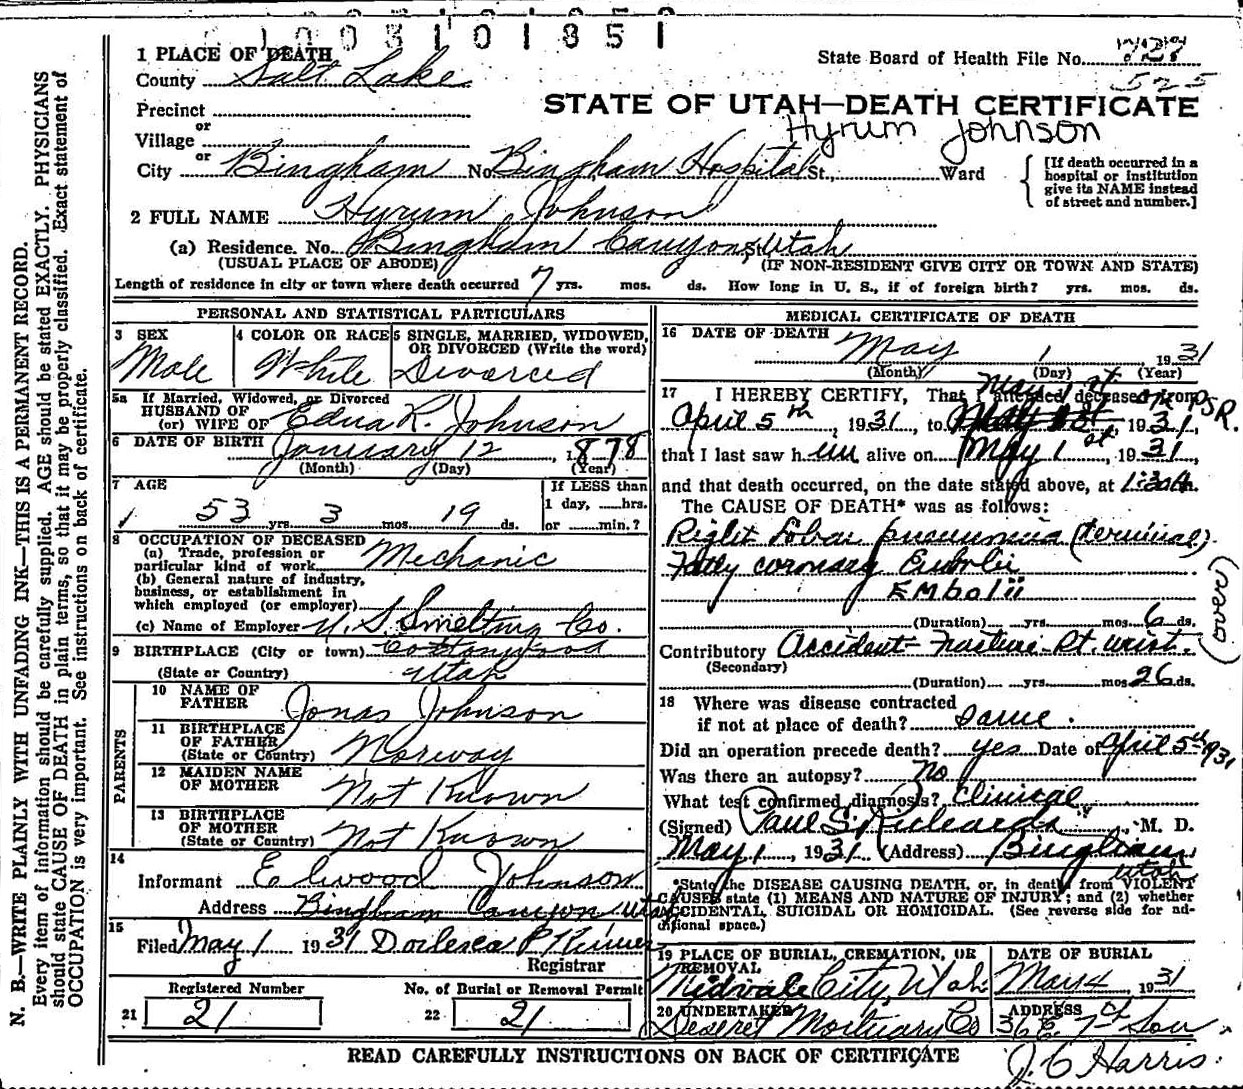 1003101851
1 PLACE OF DEATH
County Salt Lake
State Board of Health File No.
525
Precinct
or
Village
or
City Bingham No. Bingham Hospital St., Ward
STATE OF UTAH—DEATH CERTIFICATE
Hyrum Johnson
[If death occurred in a
hospital or institution
give its NAME instead
of street and number.]
2 FULL NAME Hyrum Johnson
(a) Residence. No. Bingham Canyon, Utah
(USUAL PLACE OF ABODE) (IF NON-RESIDENT GIVE CITY OR TOWN AND STATE)
Length of residence in city or town where death occurred 7 yrs. mos. ds. How long in U. S., if of foreign birth? yrs. mos. ds.
PERSONAL AND STATISTICAL PARTICULARS
3 SEX
Male
4 COLOR OR RACE
White
5 SINGLE, MARRIED, WIDOWED,
OR DIVORCED (Write the word)
Divorced
5a If Married, Widowed, or Divorced
HUSBAND OF
(or) WIFE OF Edna R. Johnson
6 DATE OF BIRTH January 12, 1878
(Month) (Day) (Year)
7 AGE
53 yrs. 3 mos. 19 ds.
If LESS than
1 day, hrs.
or min.?
8 OCCUPATION OF DECEASED
(a) Trade, profession or
particular kind of work Mechanic
(b) General nature of industry,
business, or establishment in
which employed (or employer)
(c) Name of Employer U. S. Smelting Co.
9 BIRTHPLACE (City or town) Cottonwood
(State or Country) Utah
PARENTS
10 NAME OF
FATHER Jonas Johnson
11 BIRTHPLACE
OF FATHER
(State or Country) Norway
12 MAIDEN NAME
OF MOTHER Not Known
13 BIRTHPLACE
OF MOTHER
(State or Country) Not Known
14
Informant Elwood Johnson
Address Bingham Canyon Utah
15
Filed May 1 1931 P
Registrar
Registered Number
21 21
No. of Burial or Removal Permit
22 21
MEDICAL CERTIFICATE OF DEATH
16 DATE OF DEATH May 1 1931
(Month) (Day) (Year)
17 I HEREBY CERTIFY, That I attended deceased from
May 1st
April 5th, 1931, to 1931, PSR.
that I last saw him alive on May 1st, 1931,
and that death occurred, on the date stated above, at 1:30 A.m.
The CAUSE OF DEATH* was as follows:
Right Lobar pneumonia (terminal).
Fatty coronary Embolii
EMbolii
(Duration) yrs. mos. 6 ds.
(over)
Contributory Accident - Fracture - Rt. wrist.
(Secondary)
(Duration) yrs. mos. 26 ds.
18 Where was disease contracted
if not at place of death? same.
Did an operation precede death? yes Date of April 5th 1931
Was there an autopsy? No
What test confirmed diagnosis? Clinical
(Signed) Paul S. Richards, M. D.
May 1, 1931 (Address) Bingham
Utah
*State the DISEASE CAUSING DEATH, or, in death from VIOLENT
CAUSES state (1) MEANS AND NATURE OF INJURY; and (2) whether
ACCIDENTAL, SUICIDAL OR HOMICIDAL. (See reverse side for ad-
ditional space.)
19 PLACE OF BURIAL, CREMATION, OR
REMOVAL
Midvale City, Utah
DATE OF BURIAL
May 4, 1931
20 UNDERTAKER
Deseret Mortuary Co
ADDRESS
36 E. 7th Sou
J. C Harris.
READ CAREFULLY INSTRUCTIONS ON BACK OF CERTIFICATE
N. B.—WRITE PLAINLY WITH UNFADING INK—THIS IS A PERMANENT RECORD.
Every item of information should be carefully supplied. AGE should be stated EXACTLY. PHYSICIANS
should state CAUSE OF DEATH in plain terms, so that it may be properly classified. Exact statement of
OCCUPATION is very important. See instructions on back of certificate.